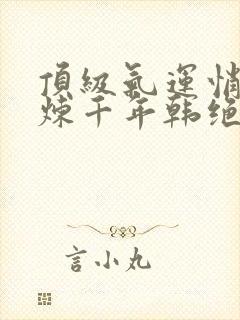 頂級氣運悄
煉千年韩绝
言小丸